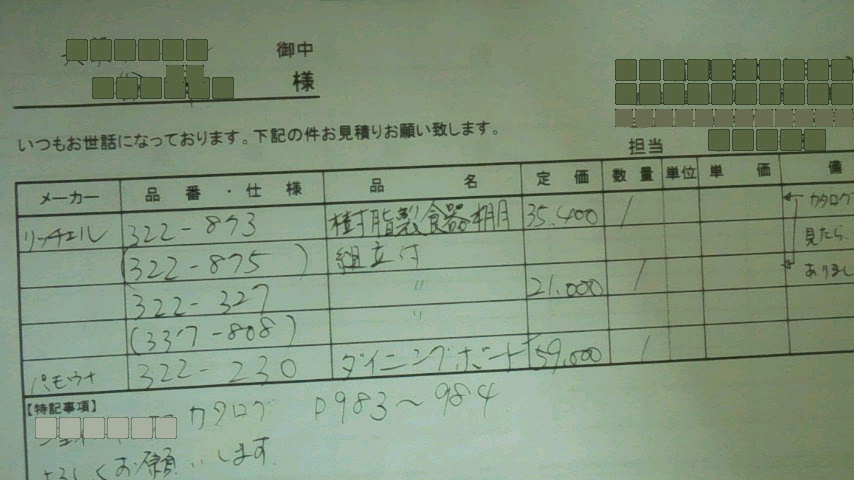 御中
様
いつもお世話になっております。下記の件お見積りお願い致します。
担当
メーカー 品番・仕様 品名 定価 数量 単位 単価 備
リッチェル 322-873 樹脂製食器棚 35.400 1 カタログ
(322-875) 組立付 見たら
322-327 〃 21.000 1 ありまし
(337-808) 〃
パモウナ 322-230 ダイニングボード 59,800 1
【特記事項】
カタログ P983～984
よろしくお願いします